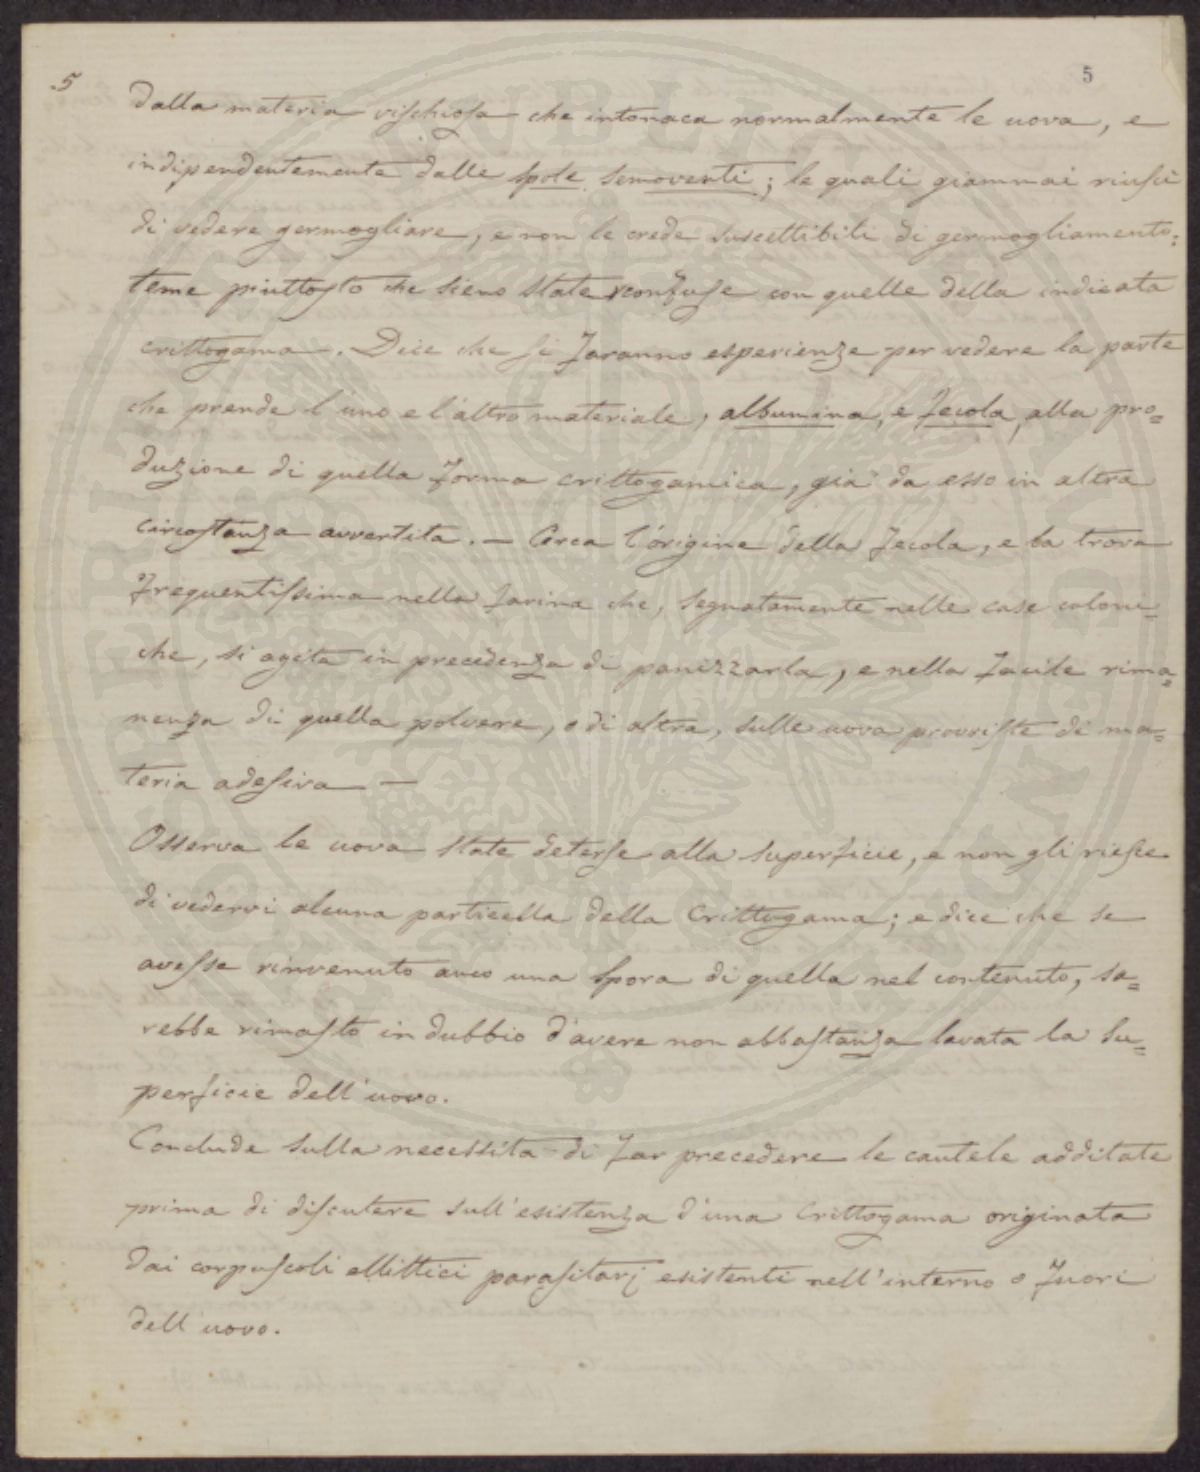 5
5
dalla materia vischiosa che intonaca normalmente le uova, e
indipendentemente dalle spole semoventi; le quali giammai riuscì
di vedere germogliare, e non le crede suscettibili di germogliamento:
teme piuttosto che sieno state confuse con quelle della indicata
crittogama. Dice che si faranno esperienze per vedere la parte
che prende l'uno e l'altro materiale, albumina, e fecola, alla pro=
duzione di quella forma crittogamica, già da esso in altra
circostanza avvertita. — Cerca l'origine della fecola, e la trova
frequentissima nella farina che, segnatamente nelle case coloni=
che, si agita in precedenza di panizzarla, e nella facile rima=
nenza di quella polvere, o di altra, sulle uova provviste di ma=
teria adesiva —
Osserva le uova state deterse alla superficie, e non gli riesce
di vedervi alcuna particella della Crittogama; e dice che se
avesse rinvenuto anco una spora di quella nel contenuto, sa=
rebbe rimasto in dubbio d'avere non abbastanza lavata la su=
perficie dell'uovo.
Conclude sulla necessità di far precedere le cautele additate
prima di discutere sull'esistenza d'una Crittogama originata
dai corpuscoli ellittici parasitarj esistenti nell'interno o fuori
dell'uovo.